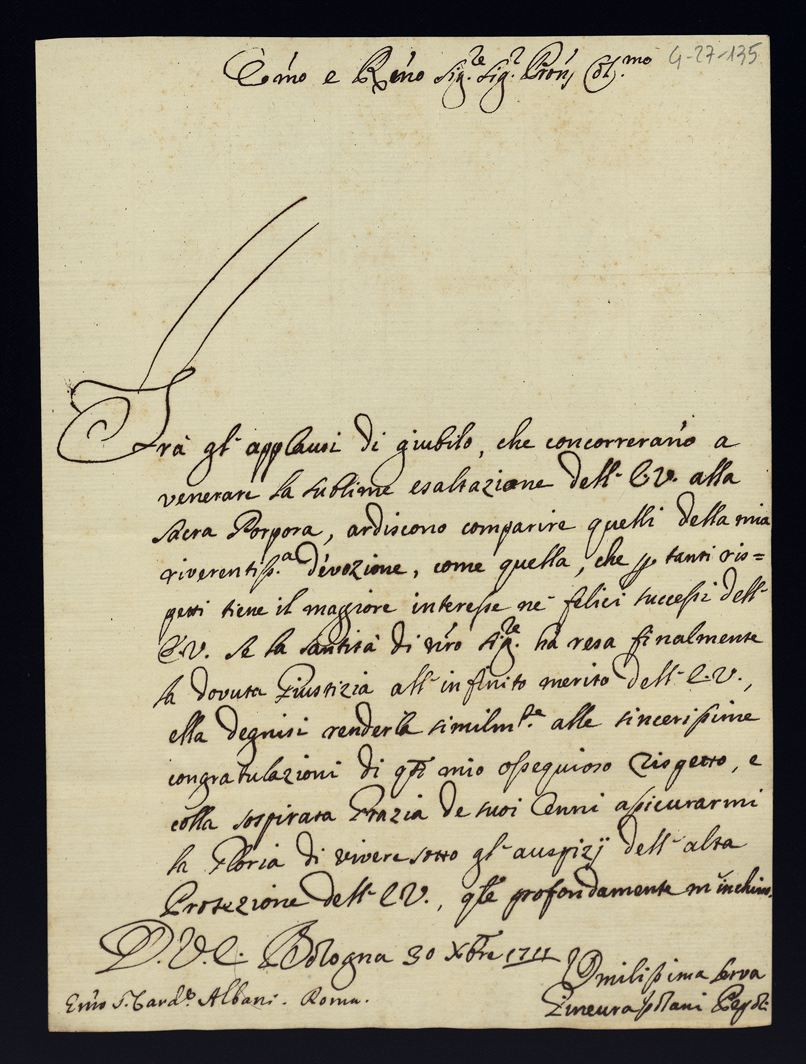 Em̃o e Rem̃o Sig.re Sig.r Pron̄ Col.mo
4-27-135
Trà gl' applausi di giubilo, che concorreran̄o a
venerare la sublime esaltazione dell' E.V. alla
Sacra Porpora, ardiscono comparire quelli della mia
riverentiss.a devozione, come quella, che p tanti ris=
petti tiene il maggiore interesse ne' felici successi dell'
E.V. Se la Santità di nr̄o Sig.re hà resa finalmente
la dovuta Giustizia all' infinito merito dell' E.V.,
ella degnisi renderla similm.te alle sincerissime
congratulazioni di qs̄t mio ossequioso Rispetto, e
colla sospirata Grazia de suoi Cenni assicurarmi
la Gloria di vivere sotto gl' auspizij dell' alta
Protezione dell' E.V., qle profondamente m'inchino.
D.V.E. Bologna 30 Xbre 1711
Umilissima Serva
Em̃o S. Card.le Albani. Roma.